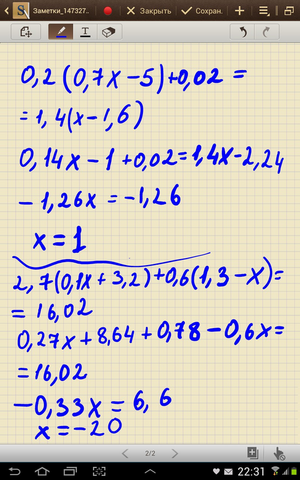 Заметки_147327...
Закрыть
Сохран.
0,2(0,7x-5)+0,02=
=1,4(x-1,6)
0,14x-1+0,02=1,4x-2,24
-1,26x=-1,26
x=1
2,7(0,1x+3,2)+0,6(1,3-x)=
=16,02
0,27x+8,64+0,78-0,6x=
=16,02
-0,33x=6,6
x=-20
2/2
22:31